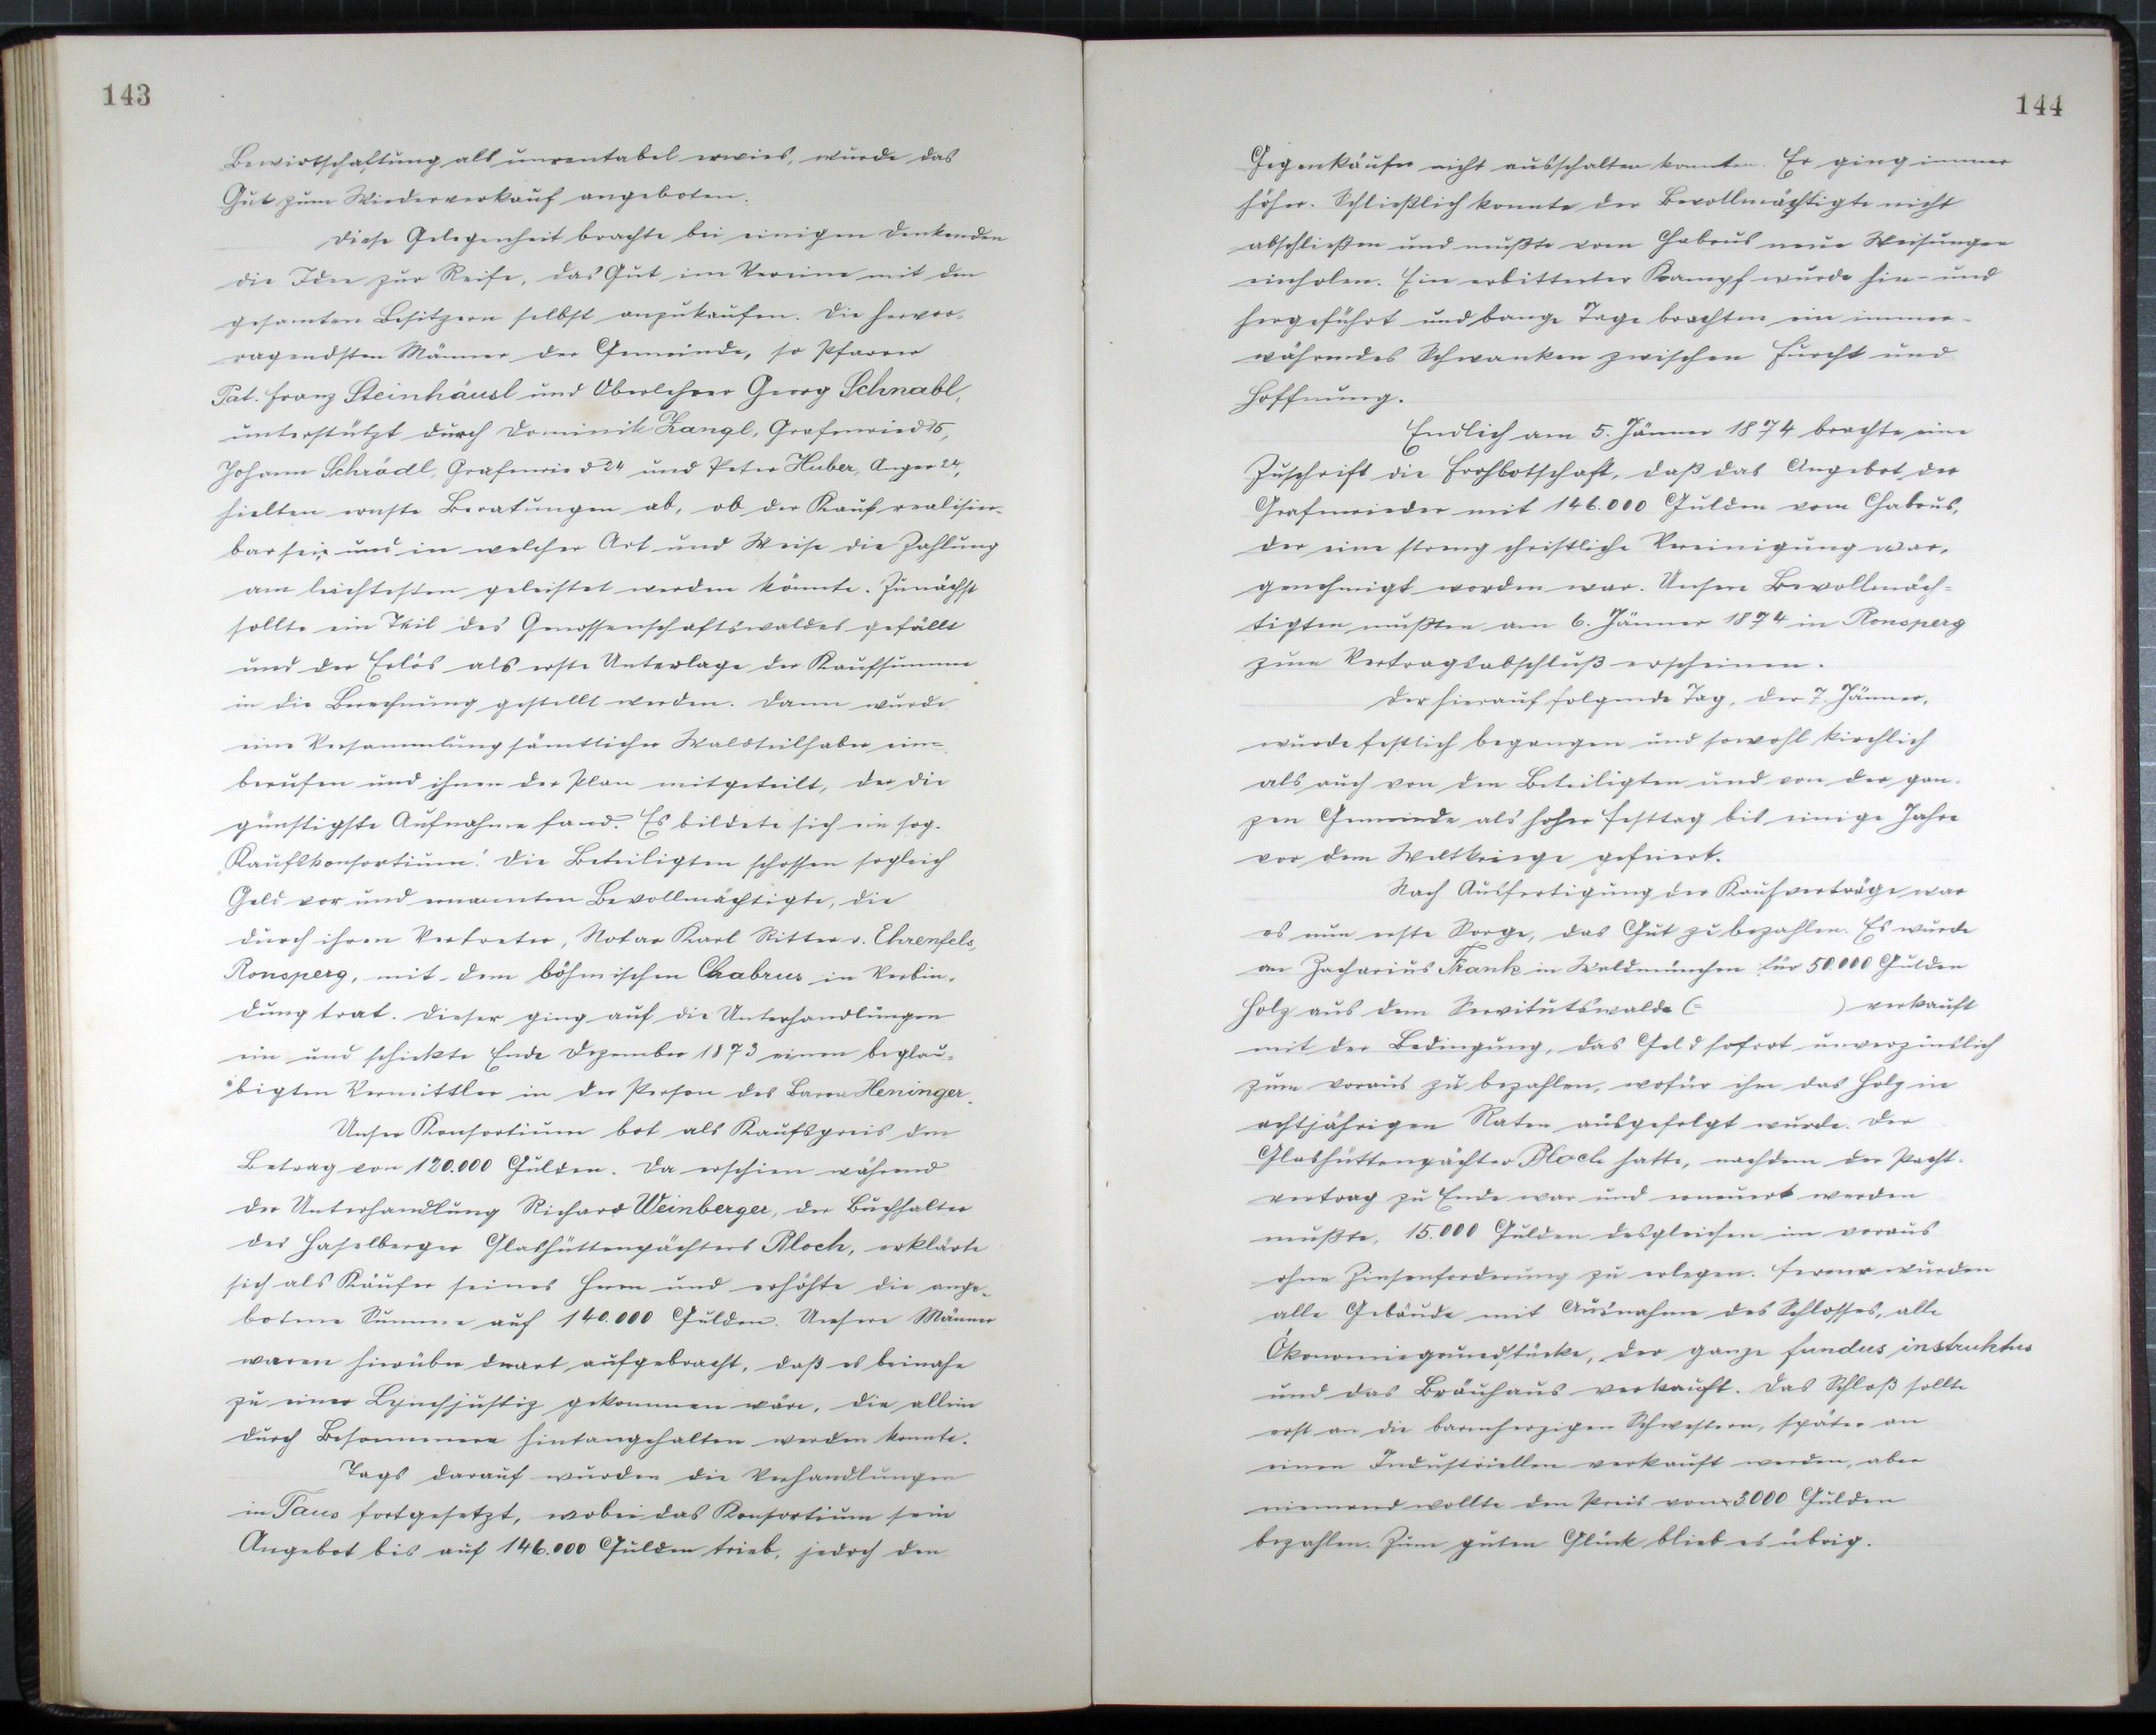 143
Bewirtschaftung als unrentabel erwies, wurde das
Gut zum Wiederverkauf angeboten.
Diese Gelegenheit brachte bei einigen Denkenden
die Idee zur Reife, das Gut im Vereine mit den
gesamten Besitzern selbst anzukaufen. Die hervor-
ragendsten Männer der Gemeinde, so Pfarrer
Pat. Franz Steinhäusl und Oberlehrer Georg Schnabl,
unterstützt durch Dominik Zangl, Grafenried 15,
Johann Schrödl, Grafenried 24 und Peter Huber, Anger 24,
hielten ernste Beratungen ab, ob der Kauf realisier-
bar sei, und in welcher Art und Weise die Zahlung
am leichtesten geleistet werden könnte. Zunächst
sollte ein Teil des Genossenschaftswaldes gefällt
und der Erlös als erste Unterlage der Kaufsumme
in die Berechnung gestellt werden. Dann wurde
eine Versammlung sämtlicher Waldteilhaber ein-
berufen und ihnen der Plan mitgeteilt, der die
günstigste Aufnahme fand. Es bildete sich ein sog.
„Kaufskonsortium." Die Beteiligten schossen sogleich
Geld vor und ernannten Bevollmächtigte, die
durch ihren Vertreter, Notar Karl Ritter v. Ehrenfels,
Ronsperg, mit dem böhmischen Chabrus in Verbin-
dung trat. Dieser ging auf die Unterhandlungen
ein und schickte Ende Dezember 1873 einen beglau-
bigten Vermittler in der Person des Baron Heninger.
Unser Konsortium bot als Kaufspreis den
Betrag von 120.000 Gulden. Da erschien während
der Unterhandlung Richard Weinberger, der Buchhalter
des Haselberger Glashüttenpächters Bloch, erklärte
sich als Käufer seines Herrn und erhöhte die ange-
botene Summe auf 140.000 Gulden. Unsere Männer
waren hierüber derart aufgebracht, daß es beinahe
zu einer Lynchjustiz gekommen wäre, die allein
durch Besonnenere hintangehalten werden konnte.
Tags darauf wurden die Verhandlungen
in Taus fortgesetzt, wobei das Konsortium sein
Angebot bis auf 146.000 Gulden trieb, jedoch den
144
Gegenkäufer nicht ausschalten konnten. Er ging immer
höher. Schließlich konnte der Bevollmächtigte nicht
abschließen und mußte vom Chabrus neue Weisungen
einholen. Ein erbitterter Kampf wurde hin- und
hergeführt und bange Tage brachten ein immer-
währendes Schwanken zwischen Furcht und
Hoffnung.
Endlich am 5. Jänner 1874 brachte eine
Zuschrift die Frohbotschaft, daß das Angebot der
Grafenrieder mit 146.000 Gulden vom Chabrus,
der eine streng christliche Vereinigung war,
genehmigt worden war. Unsere Bevollmäch-
tigten mußten am 6. Jänner 1874 in Ronsperg
zum Vertragsabschluß erscheinen.
Der hierauf folgende Tag, der 7. Jänner,
wurde festlich begangen und sowohl kirchlich
als auch von den Beteiligten und von der gan-
zen Gemeinde als hoher Festtag bis einige Jahre
vor dem Weltkriege gefeiert.
Nach Ausfertigung der Kaufverträge war
es nun erste Sorge, das Gut zu bezahlen. Es wurde
an Zacharius Frank in Waldmünchen für 50.000 Gulden
Holz aus dem Servitutswalde (= ) verkauft
mit der Bedingung, das Geld sofort unverzinslich
zum voraus zu bezahlen, wofür ihm das Holz in
achtjährigen Raten ausgefolgt wurde. Der
Glashüttenpächter Bloch hatte, nachdem der Pacht-
vertrag zu Ende war und erneuert werden
mußte, 15.000 Gulden desgleichen im voraus
ohne Zinsenforderung zu erlegen. Ferner wurden
alle Gebäude mit Ausnahme des Schlosses, alle
Ökonomiegrundstücke, der ganze fundus instruktus
und das Bräuhaus verkauft. Das Schloß sollte
erst an die barmherzigen Schwestern, später an
einen Industriellen verkauft werden, aber
niemand wollte den Preis von 3.000 Gulden
bezahlen. Zum guten Glück blieb es übrig.